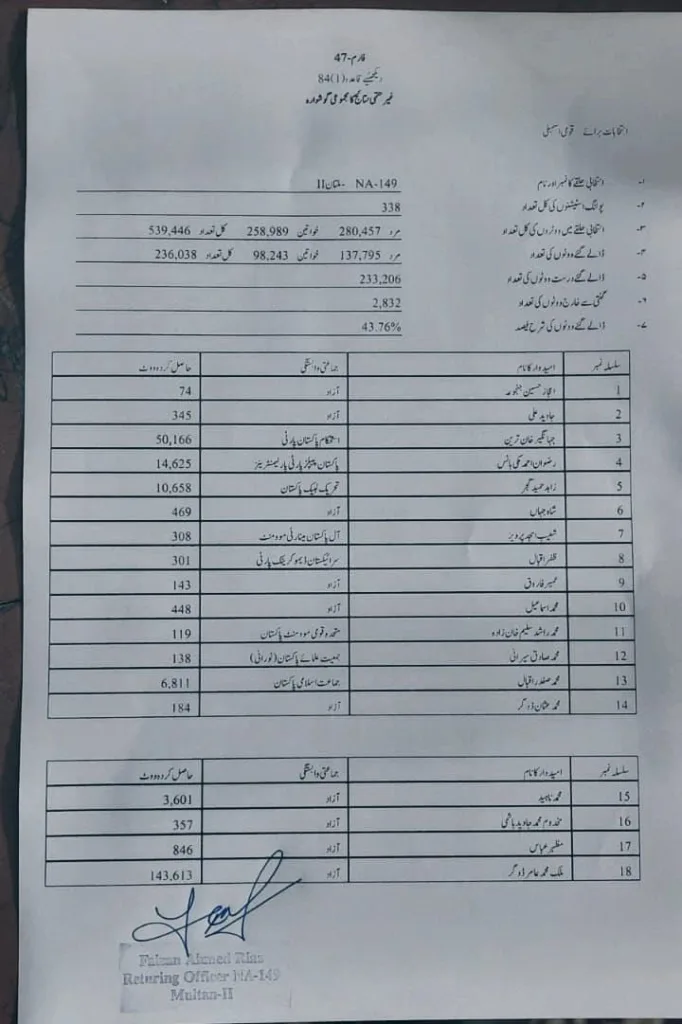 فارم-47
(دیکھئے قاعدہ (1)84
غیر حتمی نتائج کا مجموعی گوشوارہ
انتخابات برائے قومی اسمبلی
۱- انتخابی حلقے کا نمبر اور نام NA-149 -ملتان II
۲- پولنگ اسٹیشنوں کی کل تعداد 338
۳- انتخابی حلقے میں ووٹروں کی کل تعداد مرد 280,457 خواتین 258,989 کل تعداد 539,446
۴- ڈالے گئے ووٹوں کی تعداد مرد 137,795 خواتین 98,243 کل تعداد 236,038
۵- ڈالے گئے درست ووٹوں کی تعداد 233,206
۶- گنتی سے خارج ووٹوں کی تعداد 2,832
۷- ڈالے گئے ووٹوں کی شرح فیصد 43.76%
سلسلہ نمبر امیدوار کا نام جماعتی وابستگی حاصل کردہ ووٹ
1 اعجاز حسین جنجوعہ آزاد 74
2 جاوید علی آزاد 345
3 جہانگیر خان ترین استحکام پاکستان پارٹی 50,166
4 رضوان احمد پاکستان پیپلز پارٹی پارلیمنٹیرینز 14,625
5 زاہد حمید گجر تحریک لبیک پاکستان 10,658
6 شاہ جہاں آزاد 469
7 شعیب امجد پرویز آل پاکستان مینارٹی موومنٹ 308
8 ظفر اقبال سرائیکستان ڈیموکریٹک پارٹی 301
9 عمیر فاروق آزاد 143
10 محمد اسماعیل آزاد 448
11 محمد راشد سلیم خان زادہ متحدہ قومی موومنٹ پاکستان 119
12 محمد صادق میرانی جمعیت علمائے پاکستان (نورانی) 138
13 محمد صفدر اقبال جماعت اسلامی پاکستان 6,811
14 محمد عثمان ڈوگر آزاد 184
سلسلہ نمبر امیدوار کا نام جماعتی وابستگی حاصل کردہ ووٹ
15 محمد ناہید آزاد 3,601
16 مخدوم محمد جاوید ہاشمی آزاد 357
17 مظہر عباس آزاد 846
18 ملک محمد عامر ڈوگر آزاد 143,613
Faizan Ahmed Riaz
Returing Officer NA-149
Multan-II